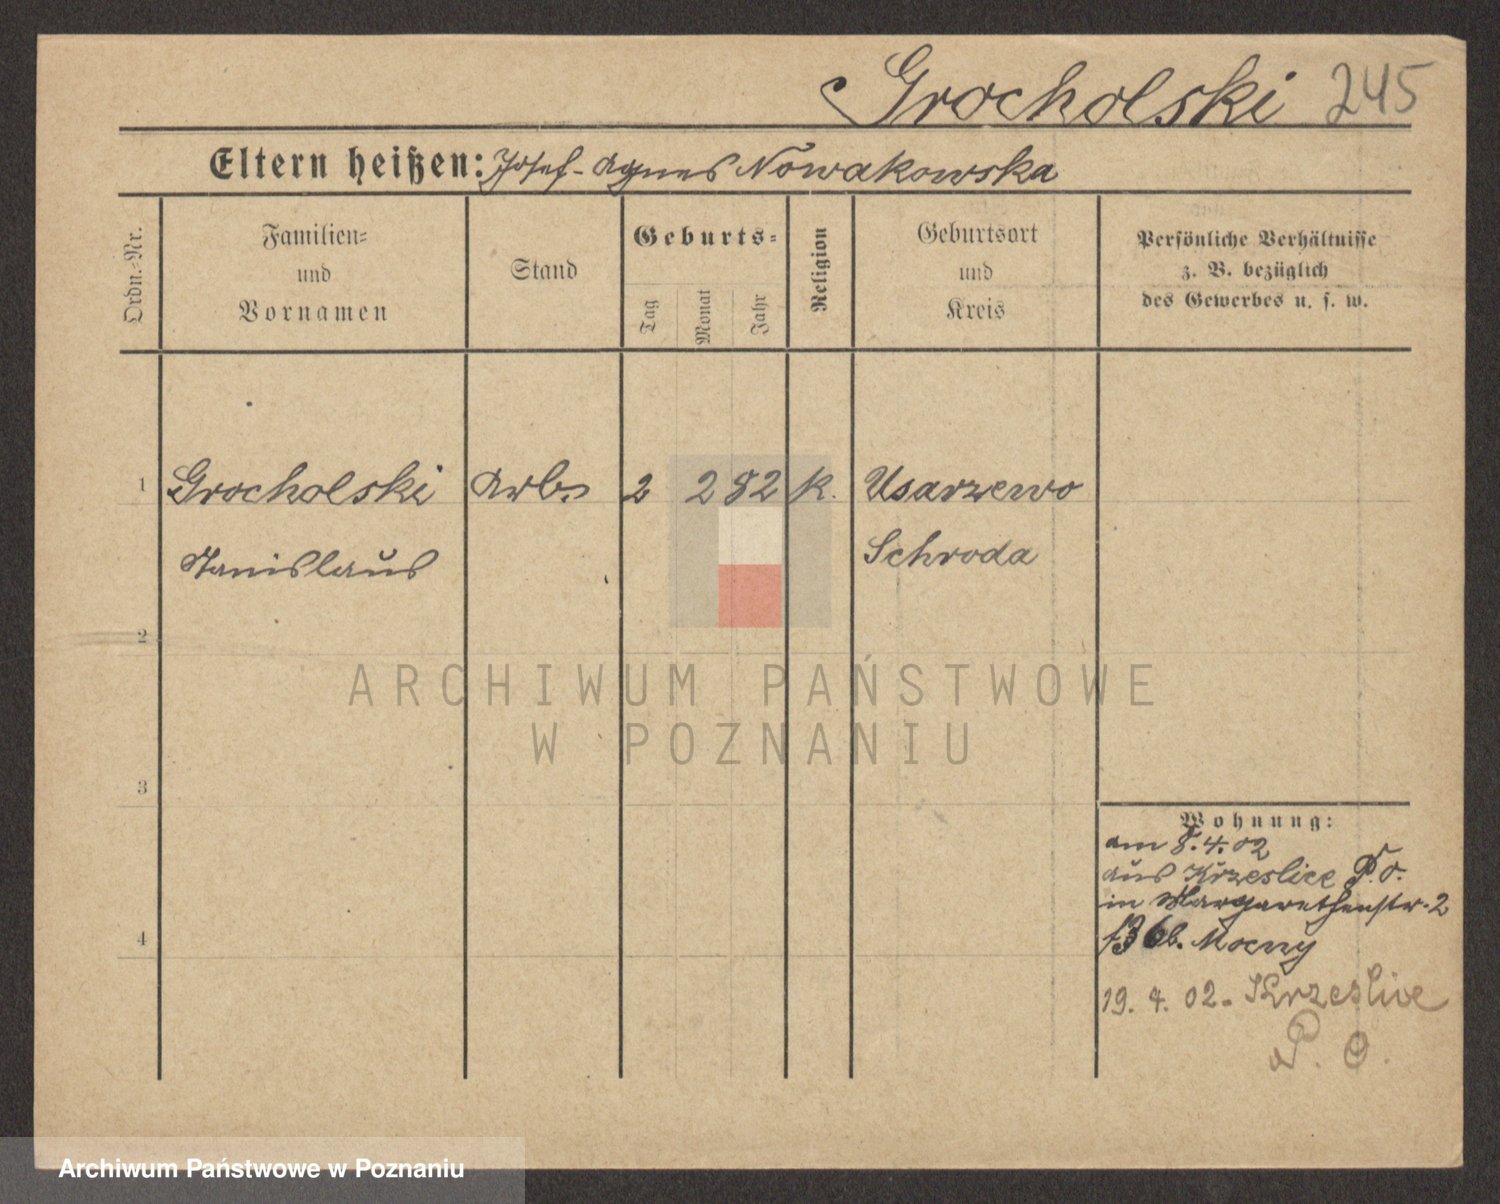 Grocholski 245
Eltern heißen: Josef - Agnes Nowakowska
Ordn.-Nr.
Familien-
und
Vornamen
Stand
Geburts-
Tag
Monat
Jahr
Religion
Geburtsort
und
Kreis
Persönliche Verhältnisse
z. B. bezüglich
des Gewerbes u. s. w.
1 Grocholski Arb. 2 2 82 K. Usarzewo
Stanislaus Schroda
2
ARCHIWUM PAŃSTWOWE
W POZNANIU
3
4
Wohnung:
am 8.4.02
aus Krzeslice P. O.
in Margarethenstr. 2
f. 36 b. Mocny
19. 4. 02. Krzeslice
P. O.
Archiwum Państwowe w Poznaniu